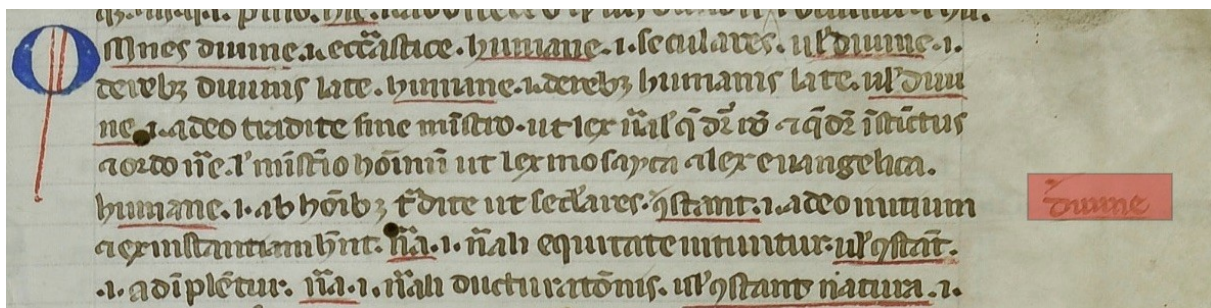 Omnes diuine .i. ecc̄astice . humane .i. seculares . ul' diuine .i.
de rebꝫ diuinis late . humane .i. de rebꝫ humanis late . ul' diui
ne .i. a deo tradite sine mīstro . ut lex
⁊ ordo . l' mīstīo hoīnū ut lex mosayca ⁊ lex euangelica .
humane .i. ab hoībꝫ t̄dite ut sec̄lares . ꝯstant .i. a deo initium
⁊ ex instantiam hn̄t . n̄a .i. n̄ali equitate nituntur . ul' ꝯstāt .
.i. adīplētur . n̄a .i. n̄ali ductu rōnis . ul' ꝯstant natura .i.
diuine